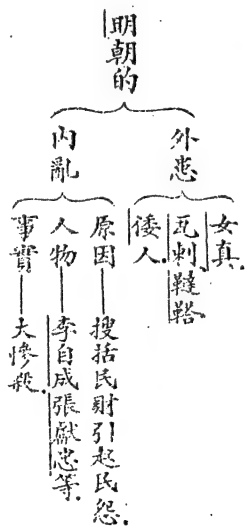 明朝的
外患
女真.
瓦剌韃靼.
倭人.
內亂
原因——搜括民財引起民怨.
人物——李自成張獻忠等.
事實——大慘殺.